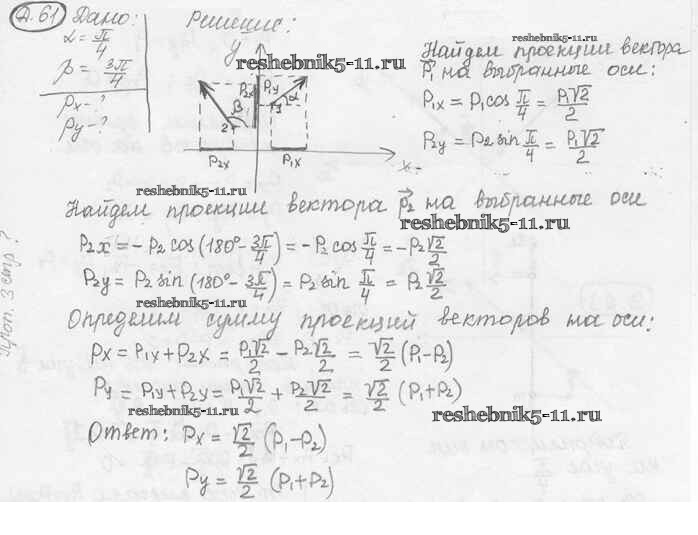 Д.61 Дано:
α = π/4
β = 3π/4
Px - ?
Py - ?
Решение:
reshebnik5-11.ru
y
P2x P1y
β α
2 1
P2x P1x x
reshebnik5-11.ru
Найдем проекции вектора
P⃗1 на выбранные оси:
P1x = P1 cos π/4 = P1√2/2
P2y = P2 sin π/4 = P1√2/2
reshebnik5-11.ru
Найдем проекции вектора P⃗2 на выбранные оси
reshebnik5-11.ru
P2x = -P2 cos (180° - 3π/4) = -P2 cos π/4 = -P2 √2/2
P2y = P2 sin (180° - 3π/4) = P2 sin π/4 = P2 √2/2
reshebnik5-11.ru
Определим сумму проекций векторов на оси:
Px = P1x + P2x = P1√2/2 - P2√2/2 = √2/2 (P1 - P2)
Py = P1y + P2y = P1√2/2 + P2√2/2 = √2/2 (P1 + P2)
reshebnik5-11.ru
reshebnik5-11.ru
Ответ: Px = √2/2 (P1 - P2)
Py = √2/2 (P1 + P2)
3 стр ?